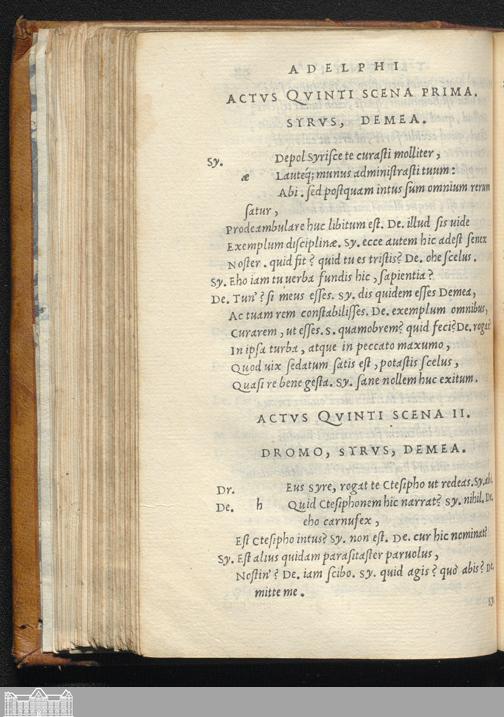 ADELPHI
ACTVS QVINTI SCENA PRIMA.
SYRVS, DEMEA.
Sy. Depol Syrisce te curasti molliter,
æ Lauteq; munus administrasti tuum:
Abi. sed postquam intus sum omnium rerum
satur,
Prodeambulare huc libitum est. De. illud sis uide
Exemplum disciplinæ. Sy. ecce autem hic adest senex
Noster. quid fit? quid tu es tristis? De. ohe scelus.
Sy. Eho iam tu uerba fundis hic, sapientia?
De. Tun'? si meus esses. Sy. dis quidem esses Demea,
Ac tuam rem constabilisses. De. exemplum omnibus,
Curarem, ut esses. S. quamobrem? quid feci? De. rogas
In ipsa turba, atque in peccato maxumo,
Quod uix sedatum satis est, potastis scelus,
Quasi re bene gesta. Sy. sane nollem huc exitum.
ACTVS QVINTI SCENA II.
DROMO, SYRVS, DEMEA.
Dr. Eus Syre, rogat te Ctesipho ut redeas. Sy. abi.
De. h Quid Ctesiphonem hic narrat? Sy. nihil. De.
eho carnufex,
Est Ctesipho intus? Sy. non est. De. cur hic nominat?
Sy. Est alius quidam parasitaster paruolus,
Nostin'? De. iam scibo. Sy. quid agis? quò abis? De.
mitte me.